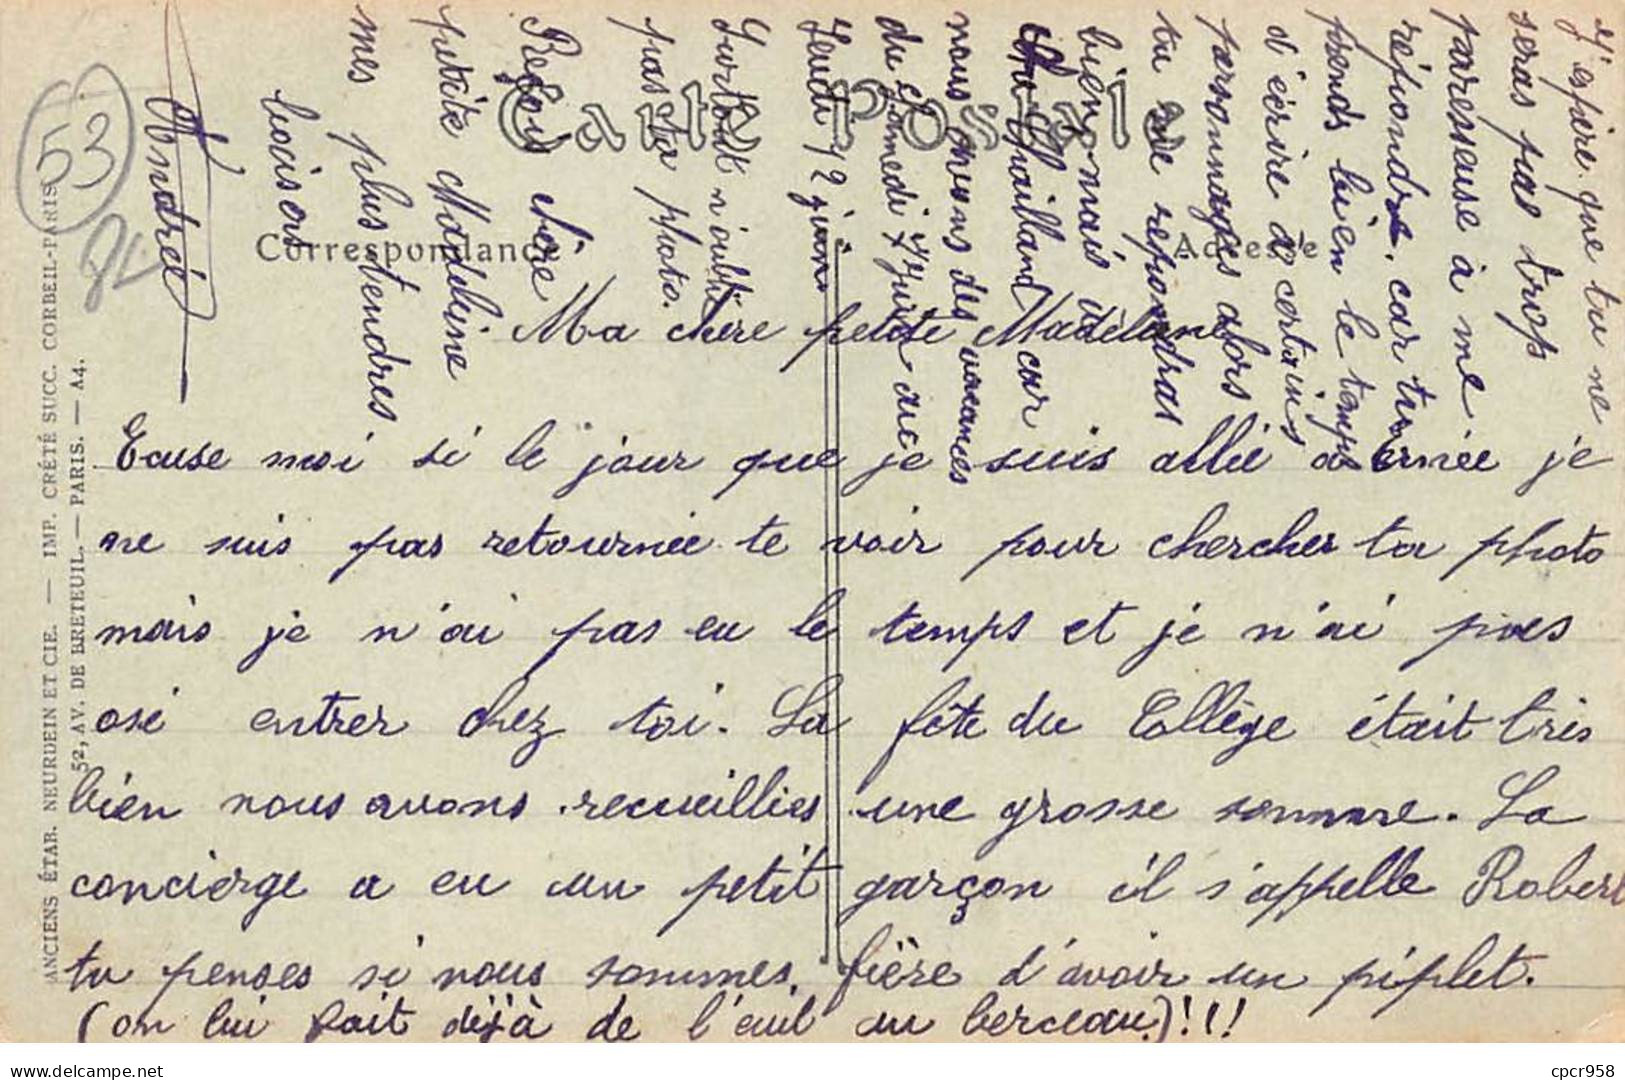 Carte Postale
Correspondance
Adresse
Ma chère petite Madeleine
Ecuse moi si le jour que je suis allée a Ernée je
ne suis pas retournée te voir pour chercher ta photo
mais je n'ai pas eu le temps et je n'ai pas
osé entrer chez toi. La fête du Collège était très
bien nous avons recueillies une grosse somme. La
concierge a eu un petit garçon il s'appelle Robert
tu penses si nous sommes fière d'avoir un piplet.
(on lui fait déjà de l'œuil au berceau)!!!
J'espère que tu ne
seras pas trop
paresseuse à me
répondre. car tu
prends bien le temps
d'écrire à certains
personnages alors
tu me répondras
bien mais à
Chailland car
nous avons des vacances
du Samedi 7 Juin au
Jeudi 12 juin
Surtout n'oublie
pas ta photo.
Reçois chère
petite Madeleine
mes plus tendres
baisers
Andrée
53
ANCIENS ÉTAB. NEURDEIN ET CIE. — IMP. CRÉTÉ SUCC. CORBEIL-PARIS
52, AV. DE BRETEUIL. — PARIS. — A4.
delcampe.net
cpcr958